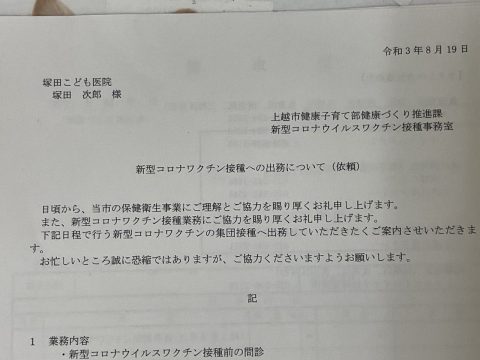 令和3年8月19日
塚田こども医院
塚田 次郎 様
上越市健康子育て部健康づくり推進課
新型コロナウイルスワクチン接種事務室
新型コロナワクチン接種への出務について（依頼）
日頃から、当市の保健衛生事業にご理解とご協力を賜り厚くお礼申し上げます。
また、新型コロナワクチン接種業務にご協力を賜り厚くお礼申し上げます。
下記日程で行う新型コロナワクチンの集団接種へ出務していただきたくご案内させいただきま
す。
お忙しいところ誠に恐縮ではありますが、ご協力くださいますようお願いします。
記
1 業務内容
・新型コロナウイルスワクチン接種前の問診